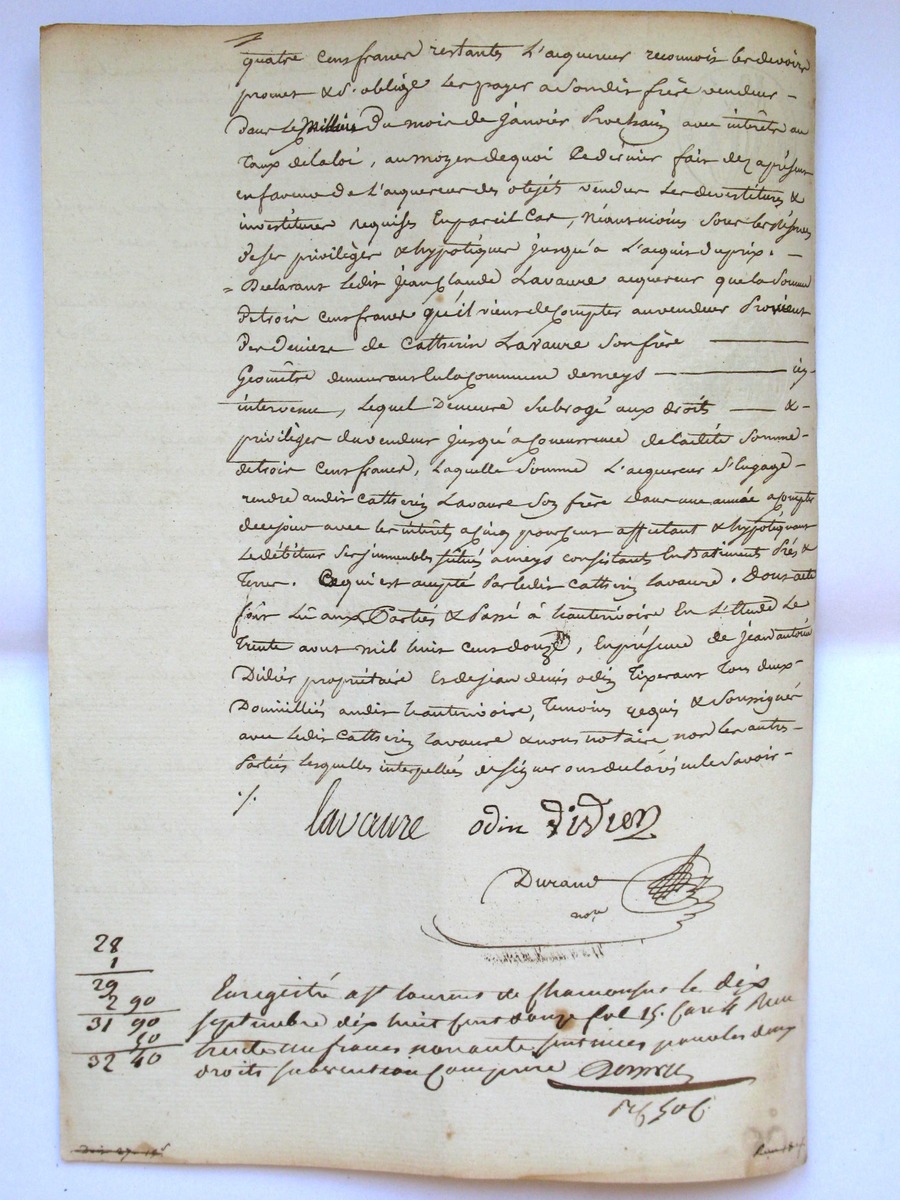 quatre cens francs restantes L'acquereur reconnoit les devoirs
promet & S'oblige les payer a Son dit frère vendeur -
dans le Millieu du mois de janvier Prochain avec intérêts au
taux de la loi, au moyen de quoi le dernier fait dez a présent
en faveur de L'acquereur des objets vendus les devestitures &
investitures requises En pareil Cas, Néanmoins sous les réserves
de ses privilèges & hypotèques jusqu'a L'acquis du prix. -
= Declarant Ledit jean Claude Lavaure acquereur que la Somme
de trois cens francs qu'il vient de Compter au vendeur Provient
des Deniers de Catherin Lavaure Son frère
Géomètre demeurant en la Commune de meys — icy
intervenu, lequel Demeure Subrogé aux droits — &
privilèges du vendeur jusqu'a Concurrence de ladite Somme
de trois Cens francs, laquelle Somme L'acquereur S'Engage
rendre audit Catherin Lavaure Son frère dans une année a Compter
de ce jour avec les intérêts a Cinq pour Cent affectant & hypotéquant
Le débiteur Ses immeubles situés a meys consistants En Batiment Prés &
Terres. Ce qui est accepté Par ledit Catherin Lavaure. Dont acte
fait Lû aux Parties & Passé à hauterivoire En L'Etude Le
Trente aout mil huit cens douze, En présence de jean antoine
Didier propriétaire Et de jean denis odin Tixerant tous deux
Domiciliés audit hauterivoire, Temoins requis & Soussignés
avec Ledit Catherin Lavaure & nous notaire non les autres
Parties lesquelles interpellées de signer ont déclaré ne le Savoir -
./.
lavaure odin didier
Durand
nore
28
1
29
2 90
31 90
50
32 40
Enregistré a St Laurent de Chamousset le dix
septembre dix huit Cent douze fol 15. Case 4 Reçu
trente un francs nonante Centimes pour les deux
droits subvention Comprise